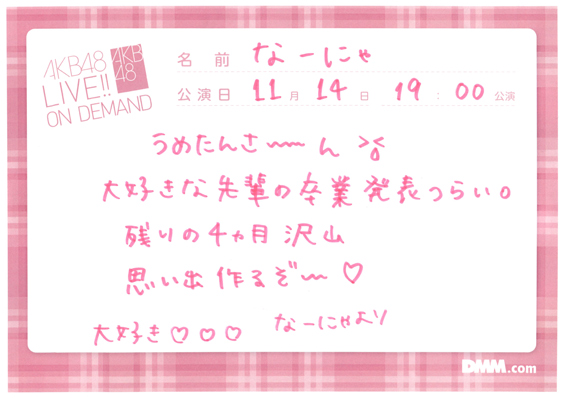 AKB48
LIVE!!
ON DEMAND
AKB
48
名前 なーにゃ
公演日 11月14日 19:00公演
うめたんさ〜〜ん
大好きな先輩の卒業発表つらい。
残りの4ヵ月沢山
思い出作るぞ〜♡
大好き♡♡♡ なーにゃより
DMM.com